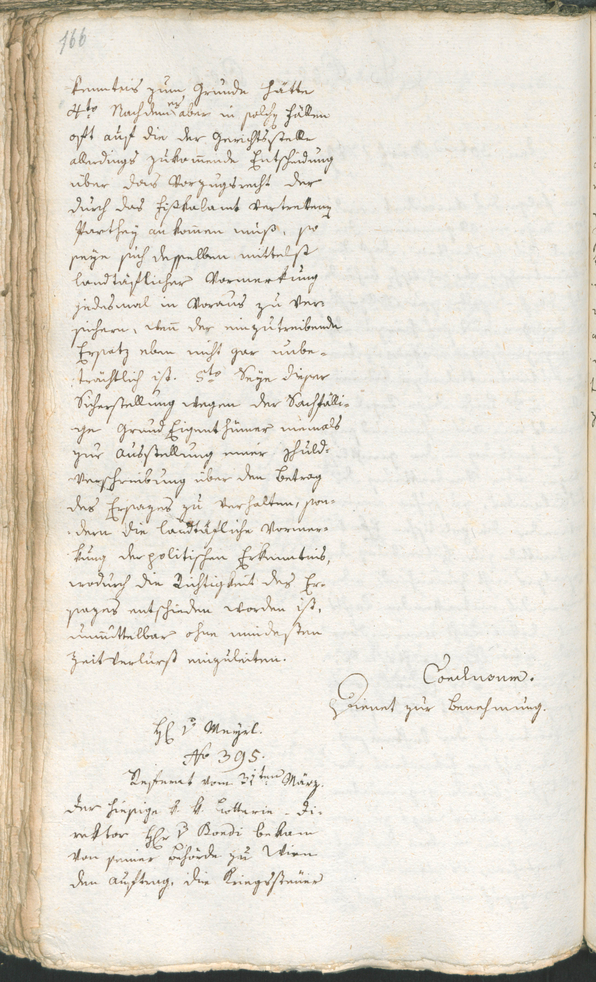 166
kenntnis zum Grunde hätte
4to Nachdem es aber in solchen Fällen
oft auf die der Gerichtsstelle
allerdings zukommende Entscheidung
über das Vorzugsrecht der
durch das Fiskalamt vertretenen
Parthey ankommen muß, so
seye sich desselben mittelst
landtäflicher Vormerkung
jedesmal in Voraus zu ver¬
sichern, wenn der einzutreibende
Ersatz eben nicht gar unbe¬
trächtlich ist. 5to Seye dieser
Sicherstellung wegen der Sachfälli¬
ge Grund Eigenthümer niemals
zur Ausstellung einer Schuld¬
verschreibung über den Betrag
des Ersazes zu verhalten, son¬
dern die landtäfliche Vormer¬
kung der politischen Erkenntnis,
wodurch die Richtigkeit des Er¬
sazes entschieden worden ist,
unmittelbar ohne mindesten
Zeitverlurst einzuleiten.
Conclusum.
Dienet zur Benehmung.
H: v: Meyrl.
No 395.
Referat vom 31ten März.
Der hiesige k. k. Lotterie-Di¬
rektor H: v: Bondi bekam
von seiner Behörde zu Wien
den Auftrag, die Kriegssteuer